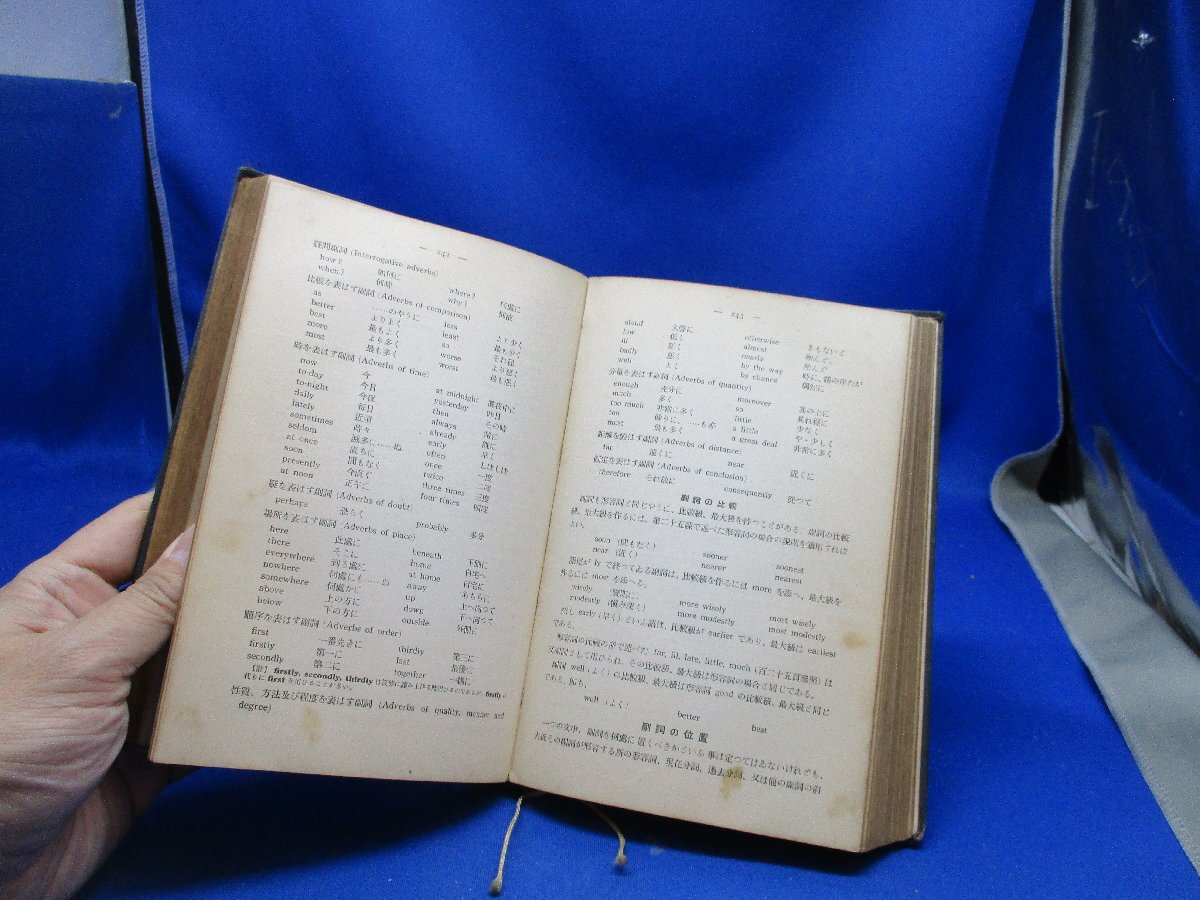 — 242 —
疑問副詞 (Interrogative adverbs)
how? 如何に where? 何處に
when? 何時 why? 何故
比較を表はす副詞 (Adverbs of comparison)
as ……のやうに less より少く
better よりよく least 最も少く
best 最もよく so それ程
more より多く worse より惡く
most 最も多く worst 最も惡く
時を表はす副詞 (Adverbs of time)
now 今 at midnight 眞夜中に
to-day 今日 yesterday 昨日
to-night 今夜 then その時
daily 毎日 always 常に
lately 近頃 already 既に
sometimes 時々 early 早く
seldom 滅多に……ぬ often しばしば
at once 直ちに once 一度
soon 間もなく twice 二度
presently 今直ぐ three times 三度
at noon 正午に four times 四度
疑を表はす副詞 (Adverbs of doubt)
perhaps 恐らく probable 多分
場所を表はす副詞 (Adverbs of place)
here 此處に beneath 下部に
there そこに home 自宅へ
everywhere 到る處に at home 自宅に
nowhere 何處にも……ぬ away あちらに
somewhere 何處かに up 上へ向つて
above 上の方に down 下へ向つて
below 下の方に outside 外部に
順序を表はす副詞 (Adverbs of order)
first 一番先きに thirdly 第三に
firstly 第一に last 最後に
secondly 第二に together 一緒に
firstly, secondly, thirdly は firstly の
代りに first を用ひることが多い。
性質、方法及び程度を表はす副詞 (Adverbs of quality, manner and
degree)
— 243 —
aloud 大聲に otherwise さもないと
low 低く almost 殆んど
ill 惡く nearly 殆んど
badly 惡く by the way 時に、話の序だが
well よく by chance 偶然に
分量を表はす副詞 (Adverbs of quantity)
enough 充分に moreover 其の上に
much 多く so 其れ程に
too much 非常に多く little 少なく
too 餘りに、……も亦 a little や、少しく
most 最も多く a great deal 非常に多く
距離を表はす副詞 (Adverbs of distance)
far 遠くに near 近くに
(Adverbs of conclusion)
therefore それ故に consequently 從つて
副詞の比較
副詞も形容詞と同じやうに、比較級、最大級を持つことがある。副詞の比較
級、最大級を作るには、第二十五課で述べた形容詞の場合の規則を適用すれば
よい。
soon (間もなく) sooner soonest
near (近く) nearer nearest
語尾が ly で終つてゐる副詞は、比較級を作るには more を添へ、最大級を
作るには most を添へる。
wisely (賢明に) more wisely most wisely
modestly (愼み深く) more modestly most modestly
但し early (早く) といふ語は、比較級が earlier であり、最大級は earliest
である。
形容詞の比較の所で述べた far, ill, late, little, much (百二十五頁參照) は
又副詞として用ひられ、その比較級、最大級は形容詞の場合と同じである。
副詞 well (よく) の比較級、最大級は形容詞 good の比較級、最大級と同じ
である。即ち、
well (よく) better best
副詞の位置
一つの文中、副詞を何處に置くべきかといふ事は定つてはゐないけれども、
大抵その副詞が形容する所の形容詞、現在分詞、過去分詞、又は他の副詞の前